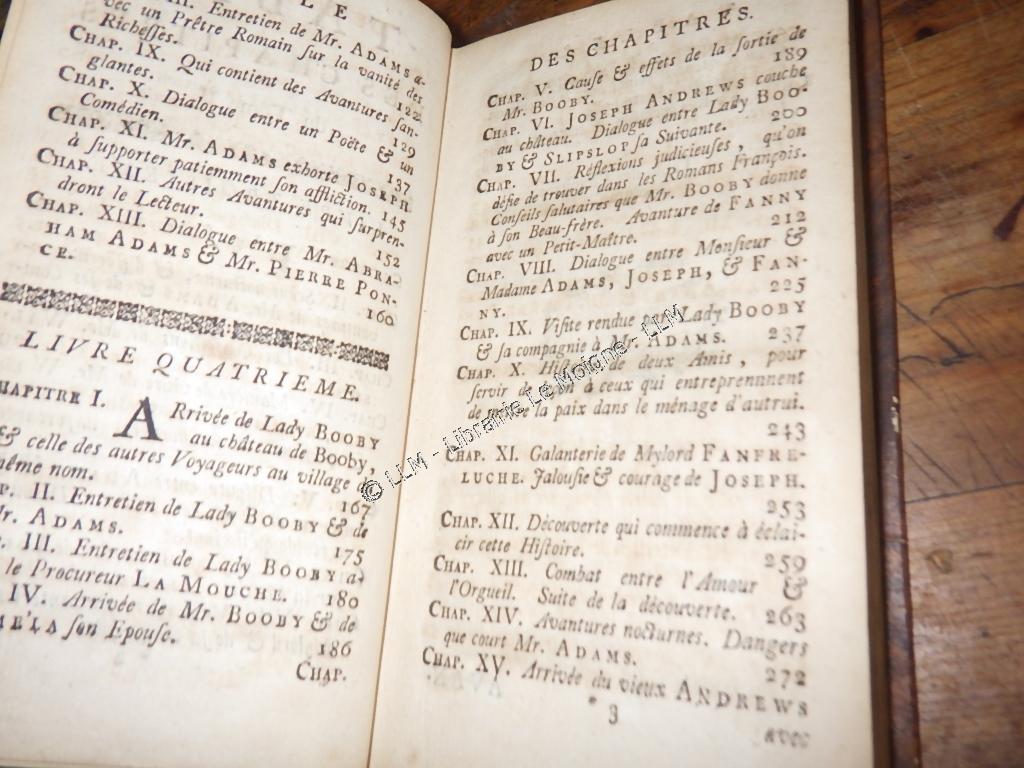 LE
III. Entretien de Mr. ADAMS a-
vec un Prêtre Romain sur la vanité des
Richesses. 122
CHAP. IX. Qui contient des Avantures san-
glantes. 129
CHAP. X. Dialogue entre un Poëte & un
Comédien. 137
CHAP. XI. Mr. ADAMS exhorte JOSEPH
à supporter patiemment son affliction. 145
CHAP. XII. Autres Avantures qui surpren-
dront le Lecteur. 152
CHAP. XIII. Dialogue entre Mr. ABRA-
HAM ADAMS & Mr. PIERRE PON-
CE. 160
LIVRE QUATRIEME.
CHAPITRE I. ARrivée de Lady BOOBY
au château de Booby,
& celle des autres Voyageurs au village
même nom. 167
II. Entretien de Lady BOOBY & de
Mr. ADAMS. 175
III. Entretien de Lady BOOBY a-
le Procureur LA MOUCHE. 180
IV. Arrivée de Mr. BOOBY & de
son Epouse. 186
CHAP.
DES CHAPITRES.
CHAP. V. Cause & effets de la sortie de
Mr. BOOBY. 189
CHAP. VI. JOSEPH ANDREWS couche
au château. Dialogue entre Lady BOO-
BY & SLIPSLOP sa Suivante. 200
CHAP. VII. Réflexions judicieuses, qu'on
défie de trouver dans les Romans François.
Conseils salutaires que Mr. BOOBY donne
à son Beau-frère. Avanture de FANNY
avec un Petit-Maître. 212
CHAP. VIII. Dialogue entre Monsieur &
Madame ADAMS, JOSEPH, & FAN-
NY. 225
CHAP. IX. Visite rendue par Lady BOOBY
& sa compagnie à Mr. ADAMS. 237
CHAP. X. Histoire de deux Amis, pour
servir de leçon à ceux qui entreprennnent
de mettre la paix dans le ménage d'autrui.
243
CHAP. XI. Galanterie de Mylord FANFRE-
LUCHE. Jalousie & courage de JOSEPH.
253
CHAP. XII. Découverte qui commence à éclai-
cir cette Histoire. 259
CHAP. XIII. Combat entre l'Amour &
l'Orgueil. Suite de la découverte. 263
CHAP. XIV. Avantures nocturnes. Dangers
que court Mr. ADAMS. 272
CHAP. XV. Arrivée du vieux ANDREWS
* 3
avec
© LLM - Librairie Le Moigne - LLM